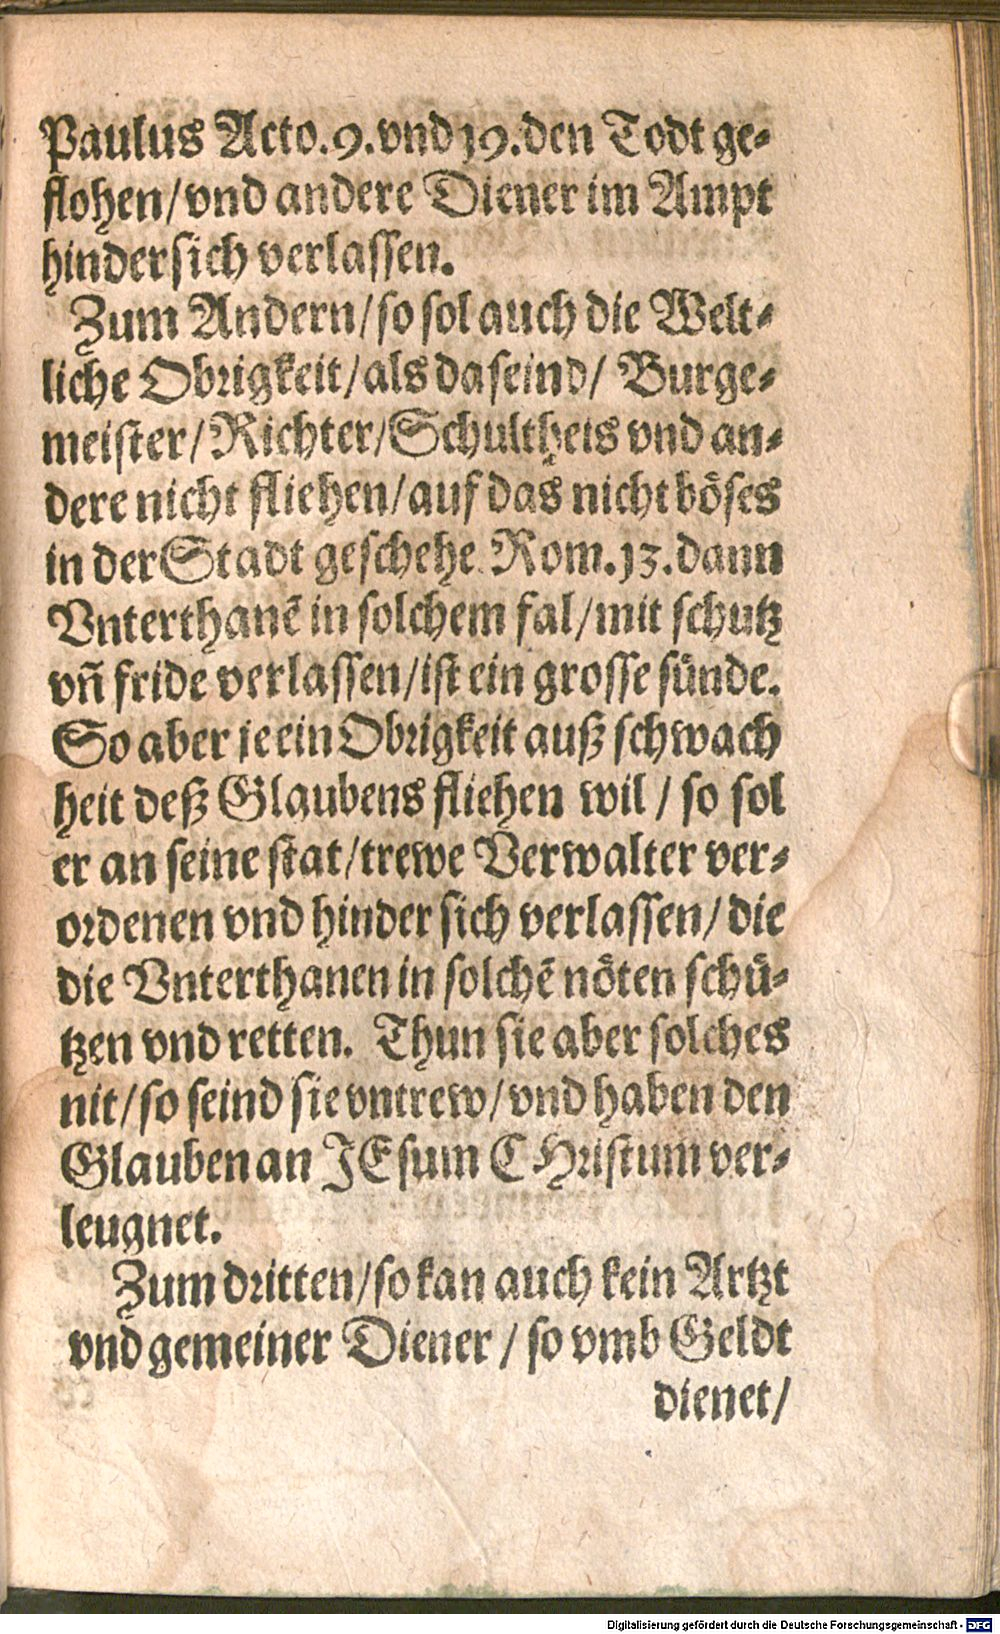 Paulus Acto.9.vnd 19.den Todt ge-
flohen/vnd andere Diener im Ampt
hindersich verlassen.
Zum Andern/so sol auch die Welt-
liche Obrigkeit/als da seind/ Burge-
meister/Richter/Schultheis vnd an-
dere nicht fliehen/auf das nicht böses
in der Stadt geschehe Rom.13.dann
Vnterthanẽ in solchem fal/mit schutz
vñ fride verlassen/ist ein grosse sünde.
So aber je ein Obrigkeit auß schwach
heit deß Glaubens fliehen wil / so sol
er an seine stat/trewe Verwalter ver-
ordenen vnd hinder sich verlassen/ die
die Vnterthanen in solchẽ nöten schü-
tzen vnd retten. Thun sie aber solches
nit/so seind sie vntrew/vnd haben den
Glauben an JEsum CHristum ver-
leugnet.
Zum dritten/so kan auch kein Artzt
vnd gemeiner Diener / so vmb Geldt
dienet/
Digitalisierung gefördert durch die Deutsche Forschungsgemeinschaft - DFG